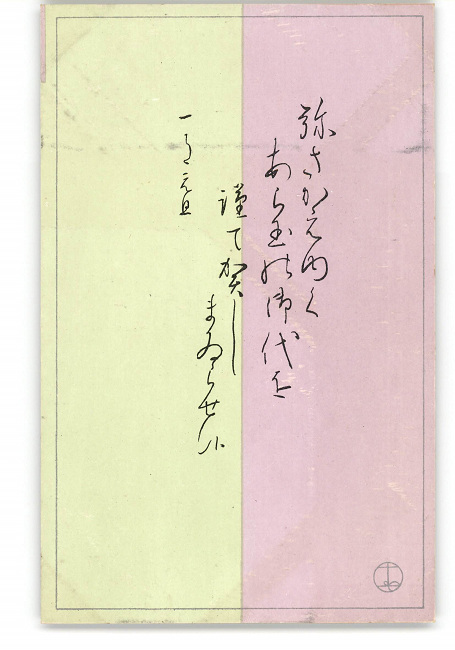 弥さかえゆく
あら玉の御代を
謹て賀し
まゐらせ候
一月元旦